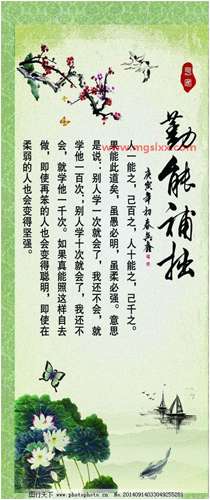 勤能补拙
庚寅年初春
一能之，己百之，人十能之，己千之。
果能此道矣，虽愚必明，虽柔必强。意思
是说：别人学一次就会了，我还不会，就
学他一百次；别人学十次就会了，我还不
会，就学他一千次。如果真能照这样自去
做，即使再笨的人也会变得聪明，即使在
柔弱的人也会变得坚强。
www.mgslxx.com